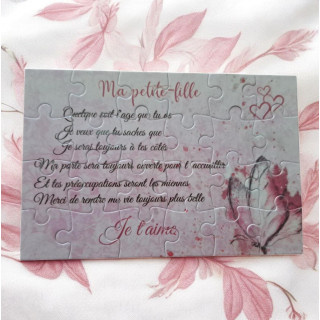 Ma petite-fille
Quelque soit l'age que tu as
Je veux que tu saches que
Je serai toujours à tes côtés
Ma porte sera toujours ouverte pour t'accueillir
Et tes préoccupations seront les miennes
Merci de rendre ma vie toujours plus belle
Je t'aime